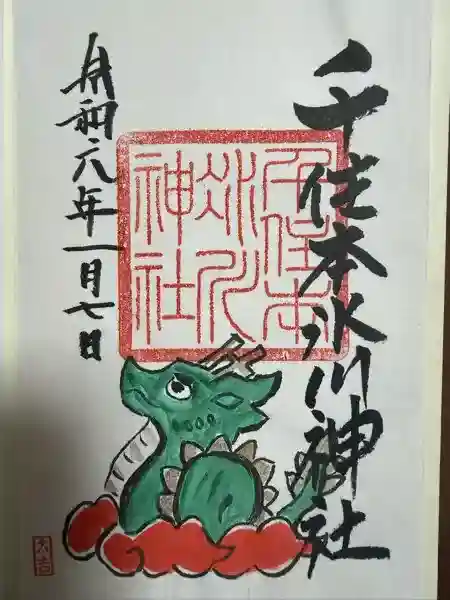 千住本氷川神社
千住本
氷川
神社
令和六年一月七日